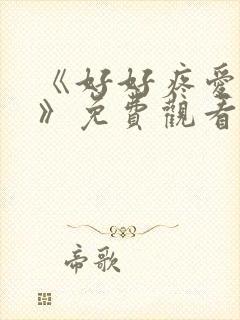 《好好疼愛
》免費觀看
帝歌